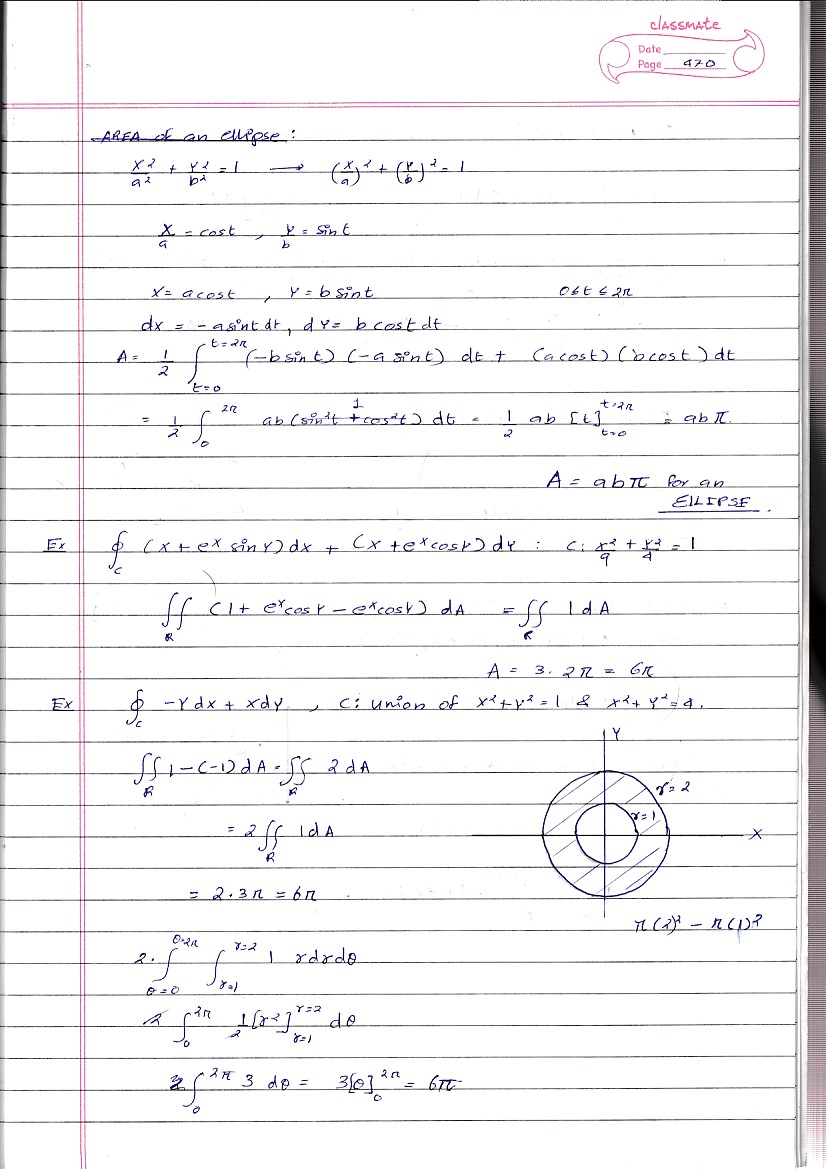 classmate
Date
Page 470
AREA of an ellipse :
x²/a² + y²/b² = 1 → (x/a)² + (y/b)² = 1
x/a = cost , y/b = sint
x = a cost , y = b sint 0 ≤ t ≤ 2π
dx = -a sint dt, dy = b cost dt
A = 1/2 ∫_{t=0}^{t=2π} (-b sint) (-a sint) dt + (a cost) (b cost) dt
= 1/2 ∫_0^{2π} ab (sin²t + cos²t) dt = 1/2 ab [t]_{t=0}^{t=2π} = abπ.
1
A = abπ for an
ELLIPSE.
Ex ∮_C (x + e^x sin y) dx + (x + e^x cos y) dy : C: x²/9 + y²/4 = 1
∬_R (1 + e^x cos y - e^x cos y) dA = ∬_R 1 dA
A = 3. 2π = 6π
Ex ∮_C -y dx + x dy , C: union of x² + y² = 1 & x² + y² = 4.
∬_R 1 - (-1) dA = ∬_R 2 dA
= 2 ∬_R 1 dA
= 2.3π = 6π
Y
r = 2
r = 1
X
π(2)² - π(1)²
2. ∫_{θ=0}^{θ=2π} ∫_{r=1}^{r=2} 1 r dr dθ
2 ∫_0^{2π} 1/2 [r²]_{r=1}^{r=2} dθ
∫_0^{2π} 3 dθ = 3[θ]_0^{2π} = 6π